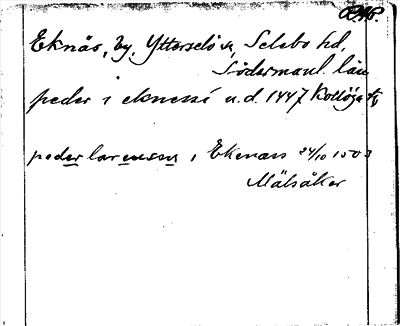 Eknäs, by, Ytterselö sn, Selebo hd,
Södermanl. län
peder i eknessi u.d. 1447
pederlarensson i Ekenæs 24/10 1503
Mälsåker